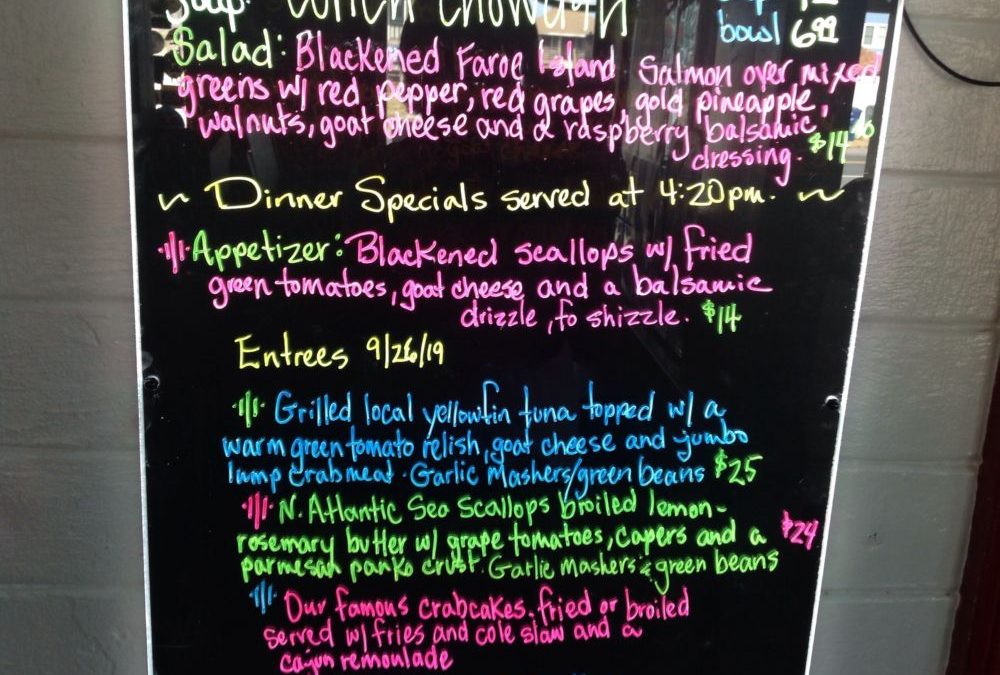 Soup: Conch Chowdah
bowl 6.99
Salad: Blackened Faroe Island Salmon over mixed
greens w/ red pepper, red grapes, gold pineapple,
walnuts, goat cheese and a raspberry balsamic
dressing. $14
~ Dinner Specials served at 4:20pm. ~
Appetizer: Blackened scallops w/ fried
green tomatoes, goat cheese and a balsamic
drizzle, fo shizzle. $14
Entrees 9/26/19
Grilled local yellowfin tuna topped w/ a
warm green tomato relish, goat cheese and jumbo
lump crabmeat. Garlic Mashers/green beans $25
N. Atlantic Sea Scallops broiled lemon-
rosemary butter w/ grape tomatoes, capers and a $24
parmesan panko crust. Garlic mashers & green beans
Our famous crabcakes. fried or broiled
served w/ fries and cole slaw and a
cajun remoulade